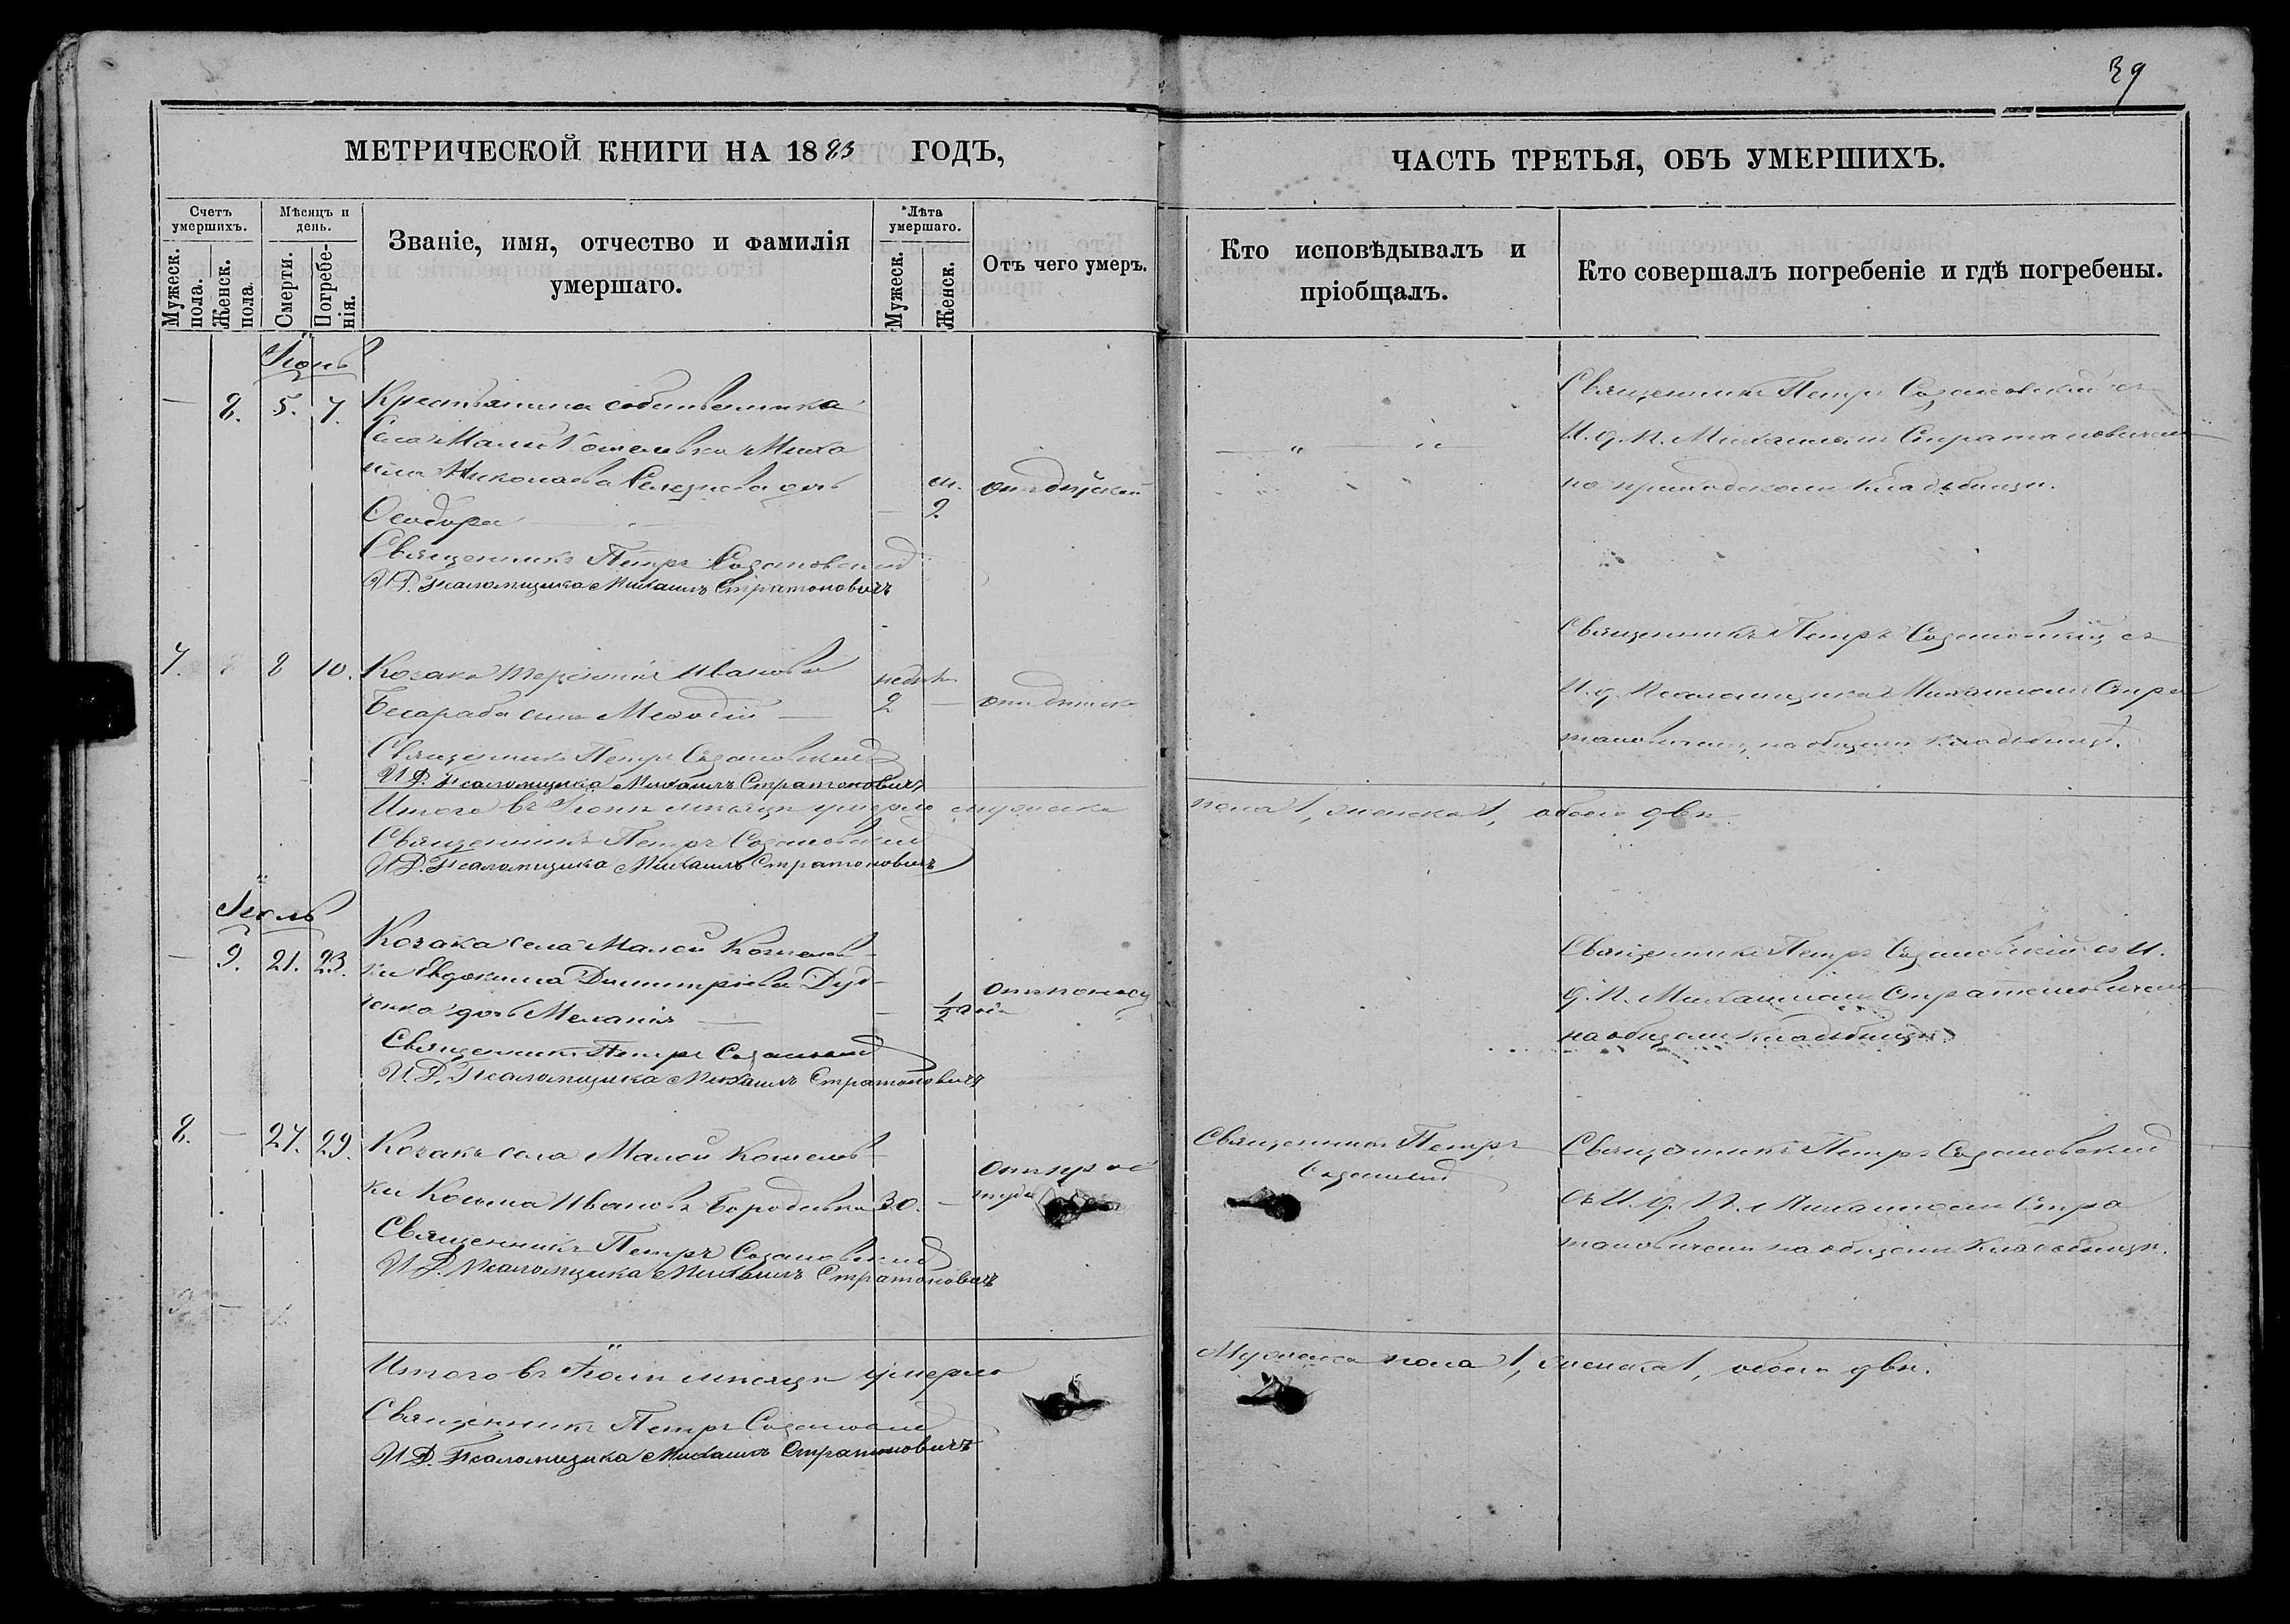 39
МЕТРИЧЕСКОЙ КНИГИ НА 1883 ГОДЪ,
ЧАСТЬ ТРЕТЬЯ, ОБЪ УМЕРШИХЪ.
Счетъ умершихъ.
Мужеск. пола.
Женск. пола
Мѣсяцъ и день.
Смерти.
Погребенія.
Званіе, имя, отчество и фамилія умершаго.
Лѣта умершаго.
Мужеск.
Женск.
Отъ чего умеръ.
Кто исповѣдывалъ и пріобщалъ.
Кто совершалъ погребеніе и гдѣ погребены.
Іюнь
— 8. 5. 7. Крестьянина собственника
села Малой Кошелевки Миха
ила Николаева дочь
Ѳеодора — м. 2
Священникъ Петръ Созановскій
И. Д. Псаломщика Михаилъ Стратоновичъ
Священникъ Петръ Созановскій съ
И. д. П. Михаиломъ Стратоновичемъ
на приходскомъ кладбищѣ.
7. 8 10. Козака Терентія Иванова
Бесараба сынъ Меѳодій — 2 —
Священникъ Петръ Созановскій
И. Д. Псаломщика Михаилъ Стратоновичъ
Священникъ Петръ Созановскій съ
И. д. Псаломщика Михаиломъ Стра
тоновичемъ, на общемъ кладбищѣ.
Итого въ Іюнѣ мѣсяцѣ умерло мужеска
пола 1, женска 1, обоего двѣ.
Священникъ Петръ Созановскій
И. Д. Псаломщика Михаилъ Стратоновичъ
Іюль
— 9. 21. 23. Козака села Малой Кошелев-
ки Евдокима Димитріева Дуд-
ченка дочь Меланія — — 1/2 года
отъ поноса
Священникъ Петръ Созановскій
И. Д. Псаломщика Михаилъ Стратоновичъ
Священникъ Петръ Созановскій съ И.
д. П. Михаиломъ Стратоновичемъ
на общемъ кладбищѣ.
8. — 27. 29. Козакъ села Малой Кошелев-
ки Косьма Ивановъ Бородавка 30. —
отъ прос
туды
Священникъ Петръ Созановскій
И. Д. Псаломщика Михаилъ Стратоновичъ
Священникъ Петръ
Созановскій
Священникъ Петръ Созановскій
съ И. д. П. Михаиломъ Стра
тоновичемъ на общемъ кладбищѣ.
Итого въ Іюлѣ мѣсяцѣ умерло
Мужеска пола 1, женска 1, обоего двѣ.
Священникъ Петръ Созановскій
И. Д. Псаломщика Михаилъ Стратоновичъ